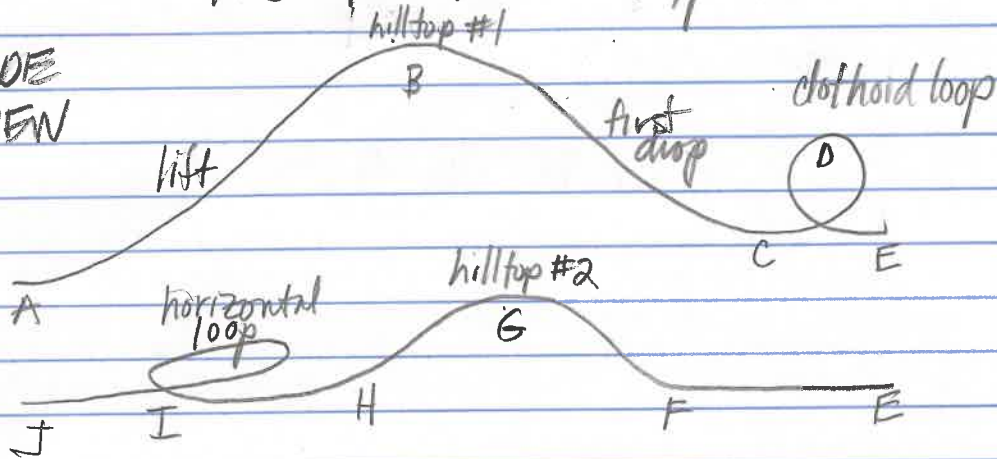 hilltop #1
B
clothoid loop
first
drop
D
lift
C
E
A
hilltop #2
horizontal
loop
G
I
H
F
E
J